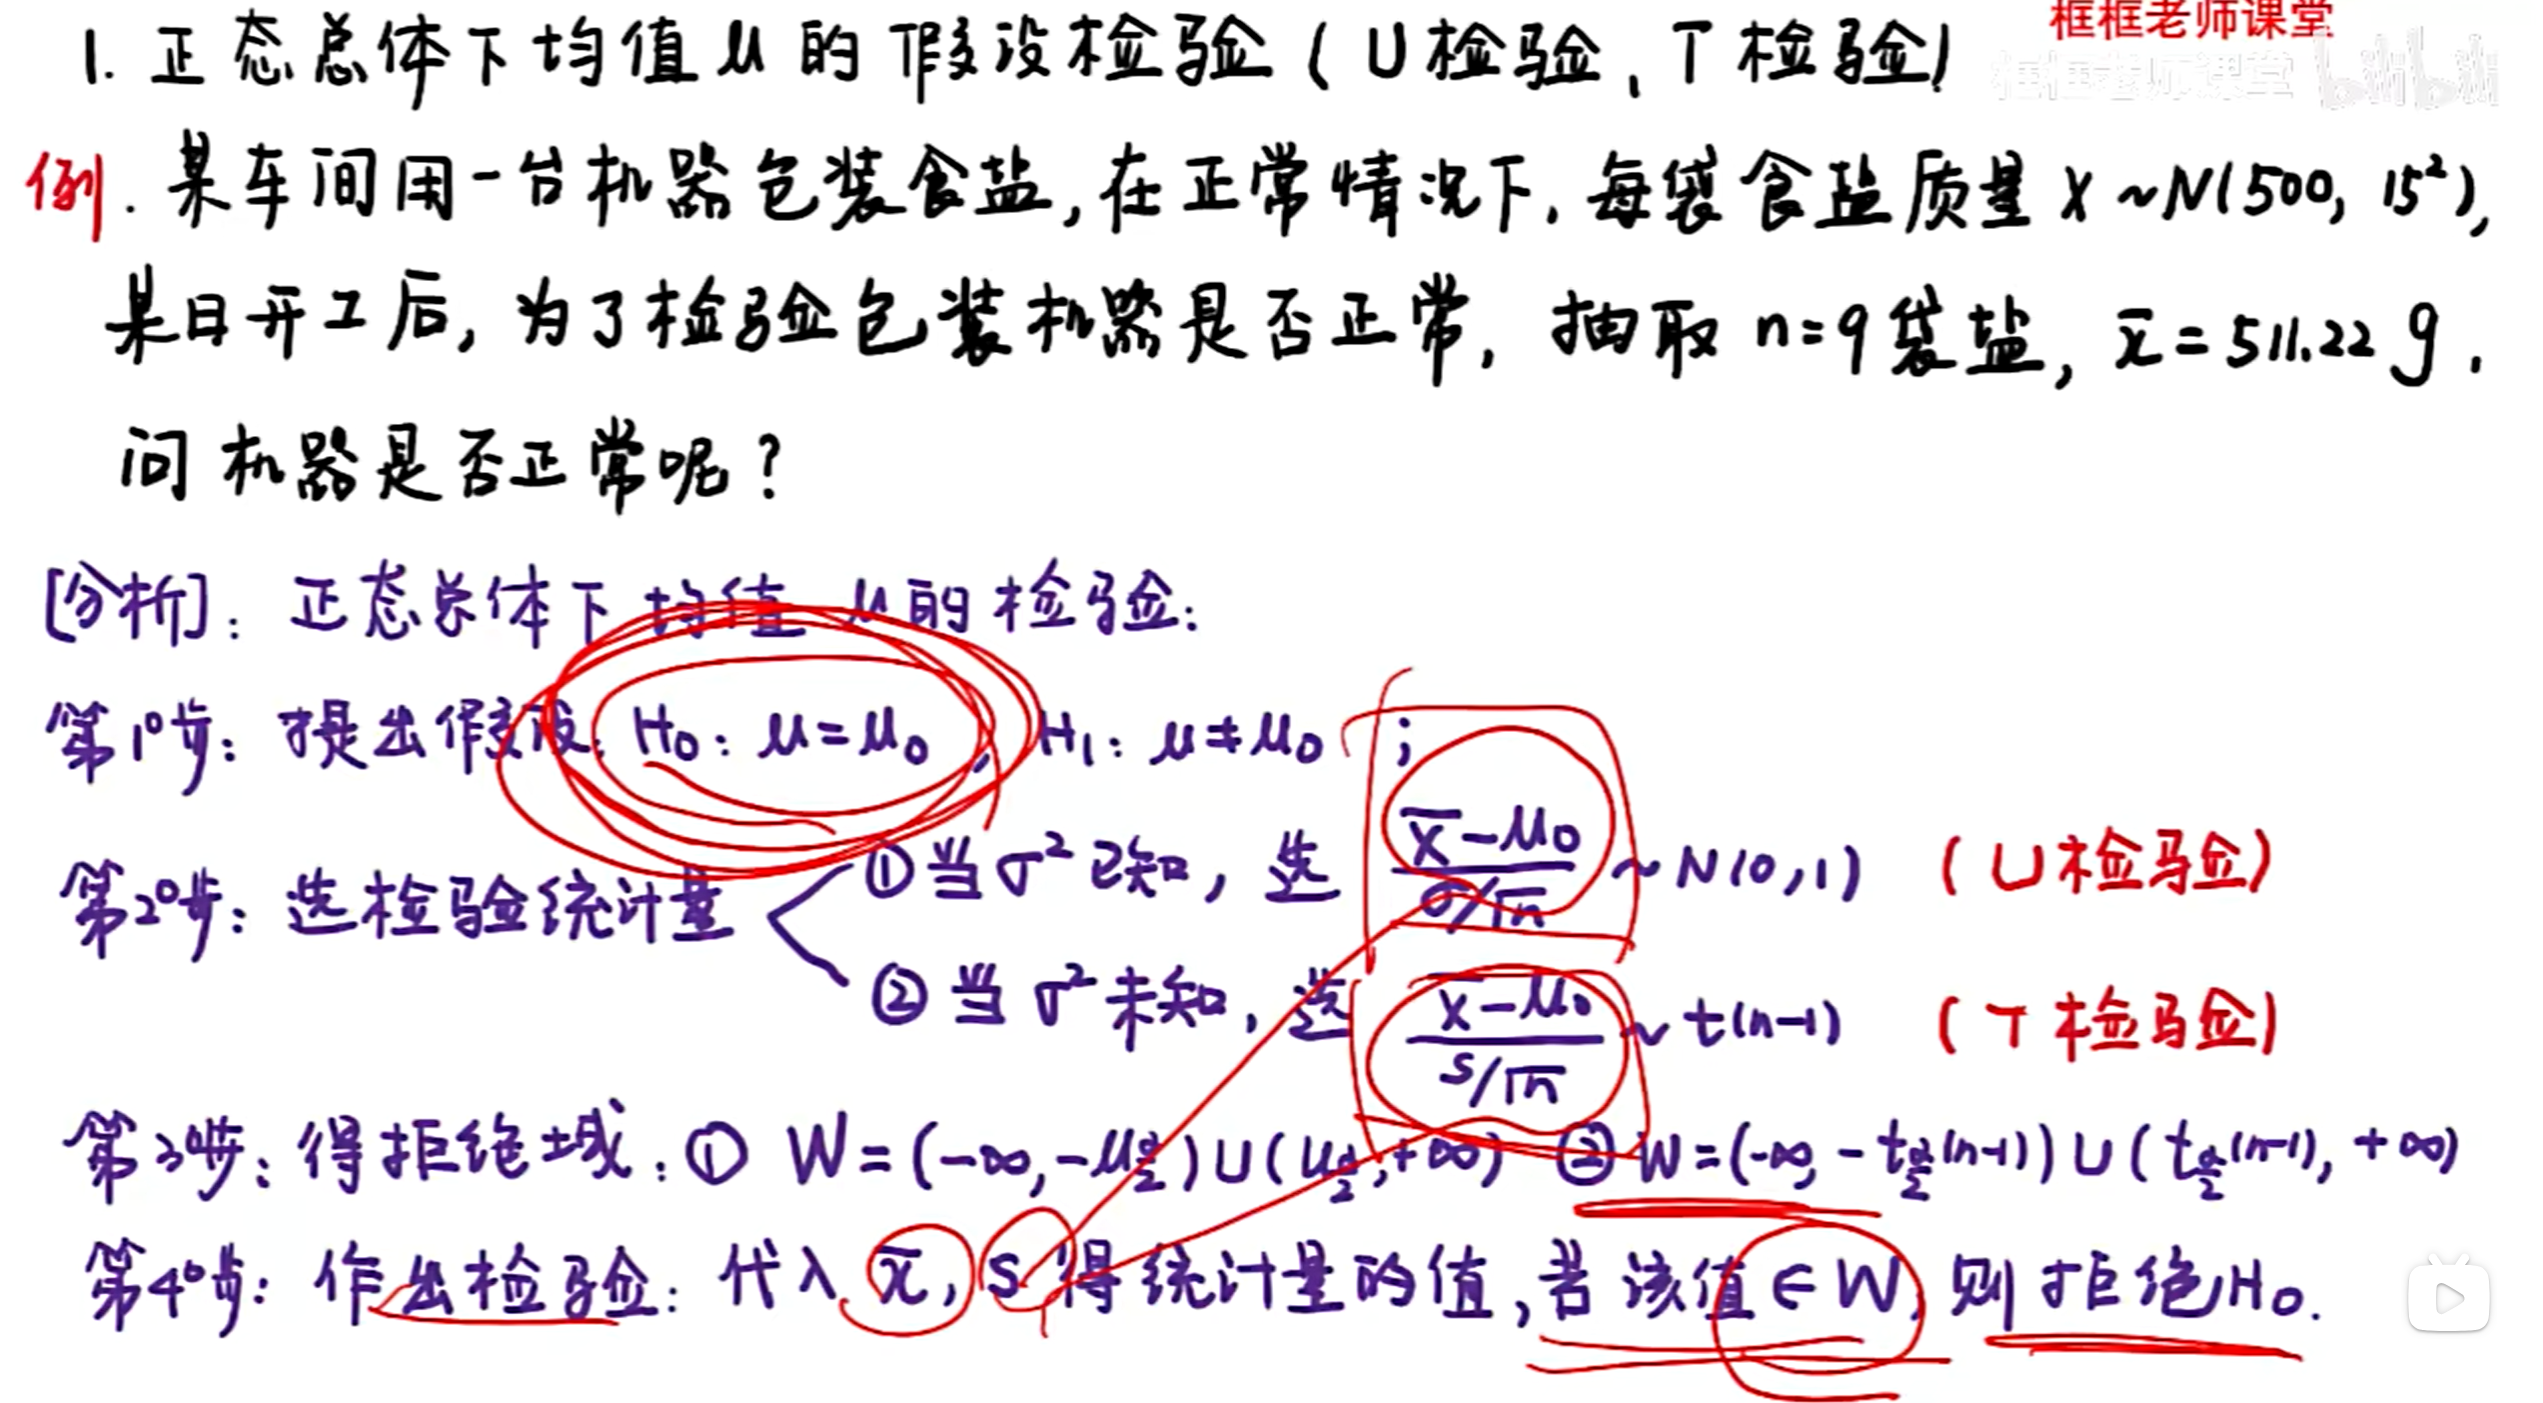 框框老师课堂
1. 正态总体下均值μ的假设检验(U检验,T检验)
框框老师课堂 bilibili
例. 某车间用一台机器包装食盐,在正常情况下,每袋食盐质量X~N(500, 15²),
某日开工后,为了检验包装机器是否正常,抽取n=9袋盐,x̄=511.22g.
问机器是否正常呢?
[分析]: 正态总体下均值μ的检验:
第1°步: 提出假设: H₀: μ=μ₀, H₁: μ≠μ₀ ;
第2°步: 选检验统计量 ①当σ²已知, 选 (x̄-μ₀)/(σ/√n) ~ N(0,1) (U检验)
②当σ²未知, 选 (x̄-μ₀)/(s/√n) ~ t(n-1) (T检验)
第3°步: 得拒绝域: ① W=(-∞,-μ_{α/2})∪(μ_{α/2},+∞) ② W=(-∞,-t_{α/2}(n-1))∪(t_{α/2}(n-1),+∞)
第4°步: 作出检验: 代入x̄, s得统计量的值,若该值∈W, 则拒绝H₀.